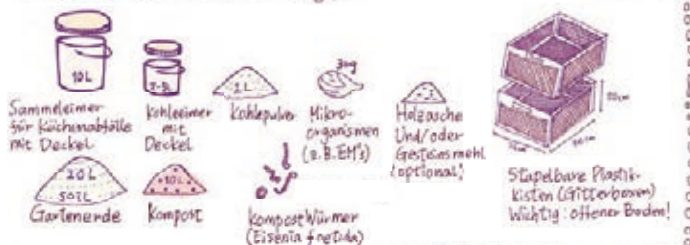 10L
Sammeleimer
für Küchenabfälle
mit Deckel
Kohleeimer
mit
Deckel
1L
Kohlepulver
30g
Mikro-
organismen
(z.B. EM's)
Holzasche
Und/oder
Gesteinsmehl
(optional)
Stapelbare Plastik-
kisten (Gitterboxen)
Wichtig: offener Boden!
20L
50L
Gartenerde
10L
Kompost
Kompostwürmer
(Eisenia foetida)